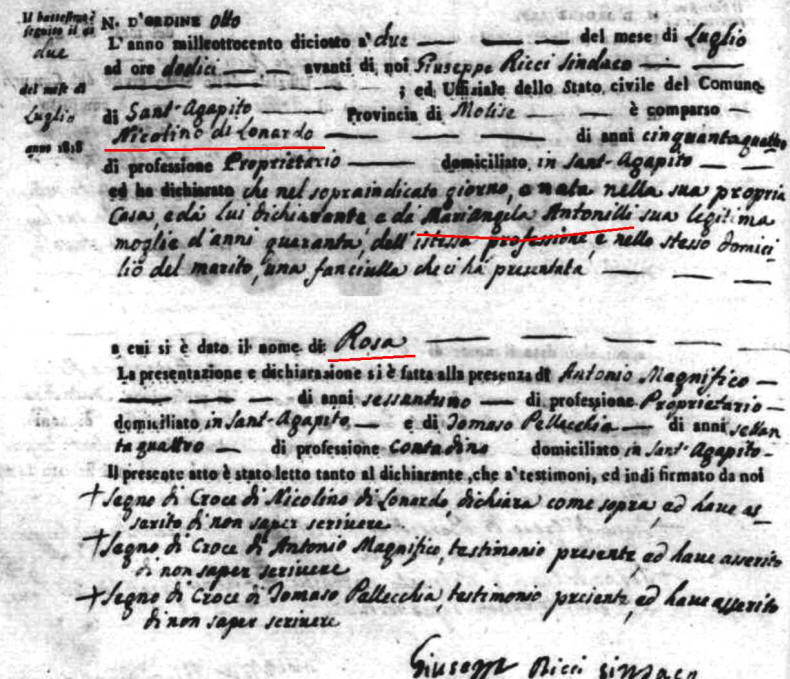 Il battesimo è
seguito il dì
due
del mese di
Luglio
anno 1818
N. D'ORDINE otto
L'anno milleottocento diciotto a' due del mese di Luglio
ad ore dodici avanti di noi Giuseppe Ricci Sindaco
; ed Uffiziale dello Stato civile del Comune
di Sant-Agapito Provincia di Molise è comparso
Nicolino di Lonardo di anni cinquantaquattro
di professione Proprietario domiciliato in Sant-Agapito
ed ha dichiarato che nel sopraindicato giorno, e nata nella sua propria
Casa, e da lui dichiarante e da Mariangela Antonilli sua legitima
moglie d'anni quaranta, dell'istessa professione, e nello stesso domici
lio del marito, una fanciulla che ci ha presentata
a cui si è dato il nome di Rosa
La presentazione e dichiarazione si è fatta alla presenza di Antonio Magnifico
di anni sessantuno di professione Proprietario
domiciliato in Sant-Agapito e di Tomaso Pellecchia di anni settan
taquattro di professione Contadino domiciliato in Sant-Agapito
Il presente atto è stato letto tanto al dichiarante, che a' testimoni, ed indi firmato da noi
+ Segno di Croce di Nicolino di Lonardo, dichiara come sopra, ed have as_
serito di non saper scrivere
+ Segno di Croce di Antonio Magnifico, testimonio presente, ed have asserito
di non saper scrivere
+ Segno di Croce di Tomaso Pellecchia, testimonio presente, ed have asserito
di non saper scrivere
Giuseppe Ricci Sindaco